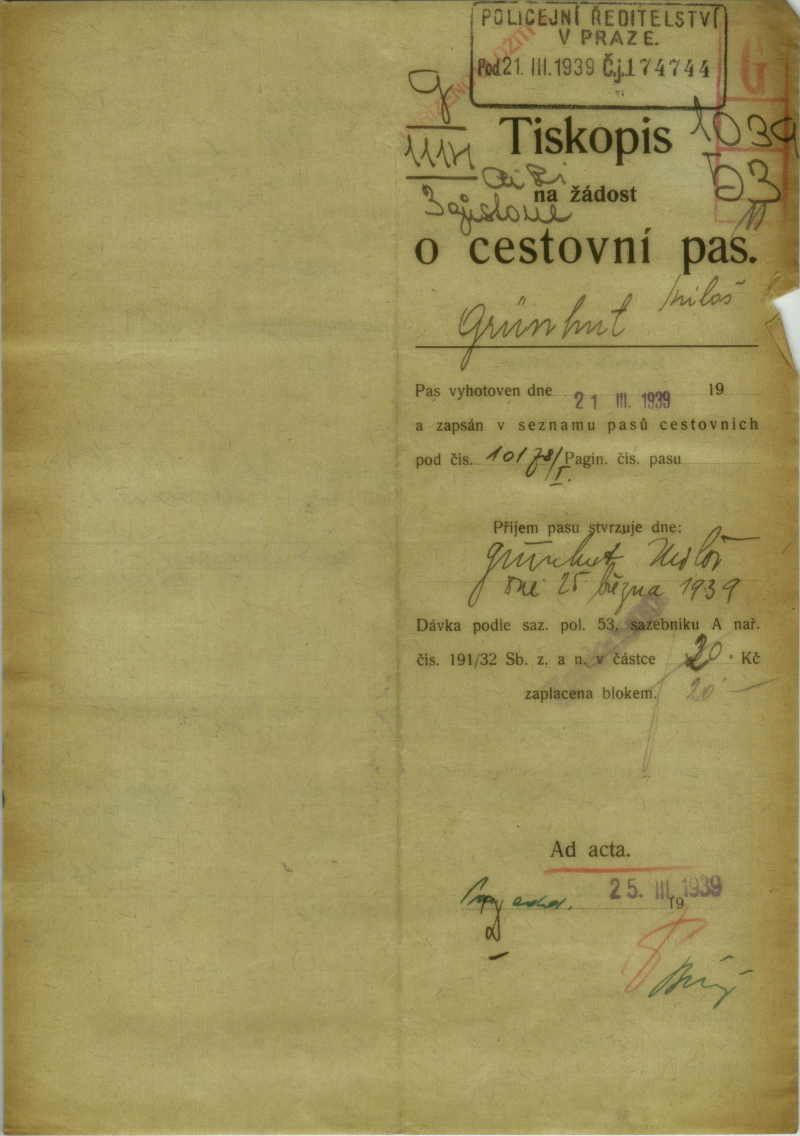 POLICEJNÍ ŘEDITELSTVÍ
V PRAZE.
Pod 21. III. 1939 Č.j. 174744
G
Tiskopis
1039
53
na žádost
o cestovní pas.
Grünhut Miloš
Pas vyhotoven dne 21 III. 1939 19
a zapsán v seznamu pasů cestovních
pod čís. 10178/I. Pagin. čís. pasu
Příjem pasu stvrzuje dne:
Grünhut Miloš
dne 25 března 1939
Dávka podle saz. pol. 53, sazebníku A nař.
čís. 191/32 Sb. z. a n. v částce 20.- Kč
20 —
zaplacena blokem.
Ad acta.
25. III. 1939
19